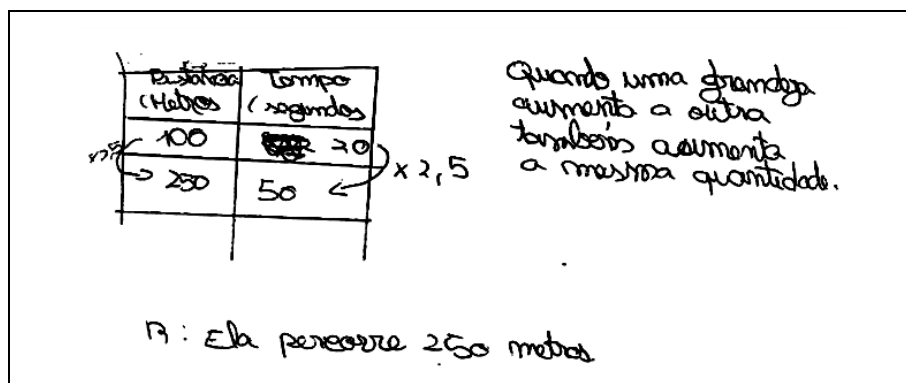 Distância Tempo
(Metros (segundos
100 20
x2,5 x 2,5
250 50
Quando uma grandeza
aumenta a outra
também aumenta
a mesma quantidade.
R: Ela percorre 250 metros